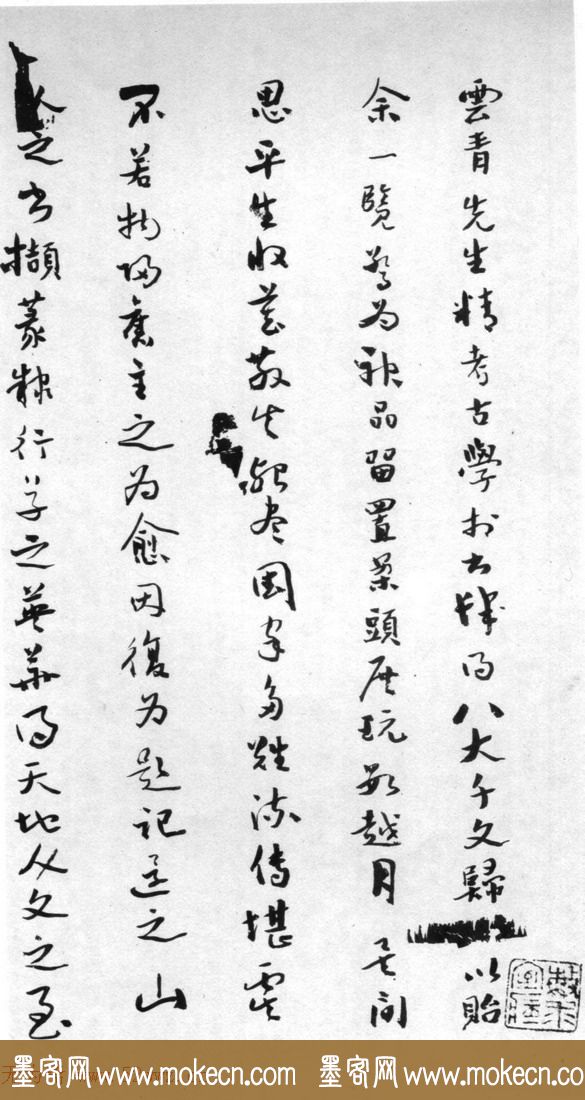 雲青先生精考古學於書肆得八大千文歸以貽
余一覽驚為神品留置案頭展玩數越月 其間
思平生收藏散失能盡國家多難流傳堪虞
不若物歸舊主之為愈因復為題記還之 山
人之书擷篆隸行草之英華得天地人文之至
墨客网 www.mokecn.com 墨客网 www.mokecn.com